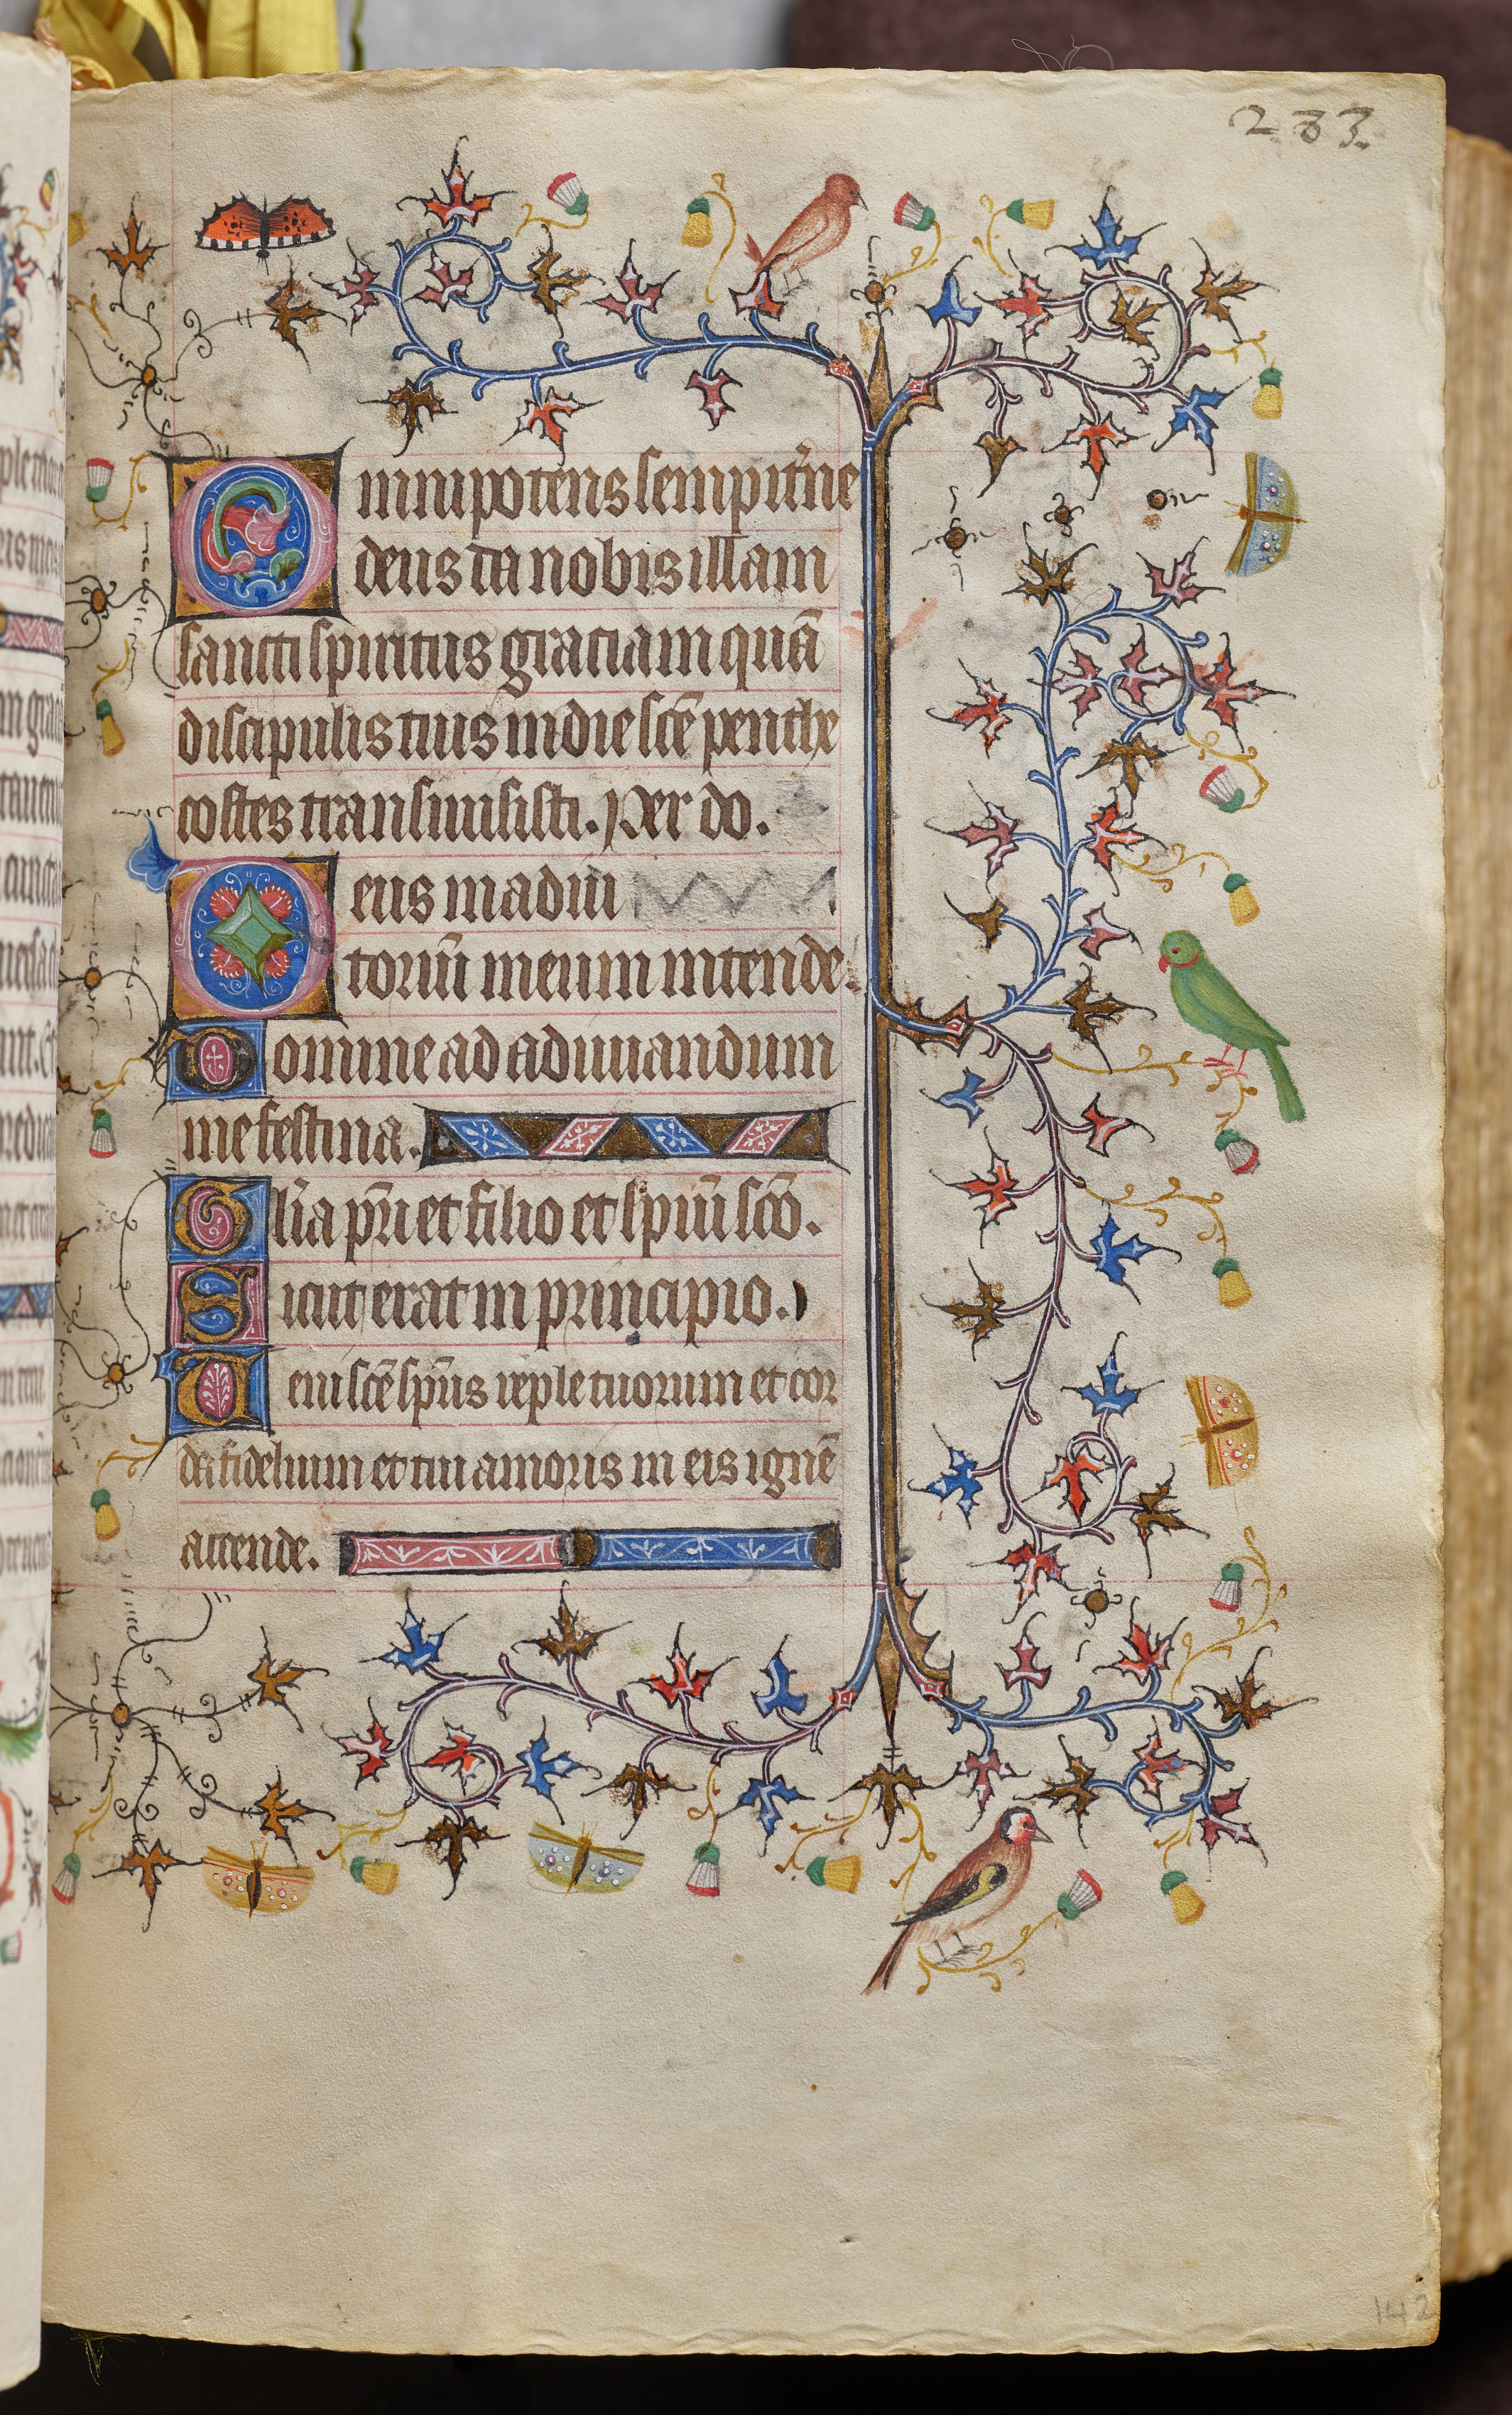 233.
Omnipotens sempit̾ne
deus da nobis illam
sancti spiritus graciam quā
discipulis tuis in die sc̄e penthe
costes transmisisti. Per do.
Deus in adiu
toriū meum intende.
Domine ad adiuuandum
me festina.
Gl̄ia pr̄i et filio et spiūi sc̄o.
Sicut erat in principio.
Ueni sc̄e sp̄us reple tuorum et cor
da fidelium et tui amoris in eis ignē
accende.
142